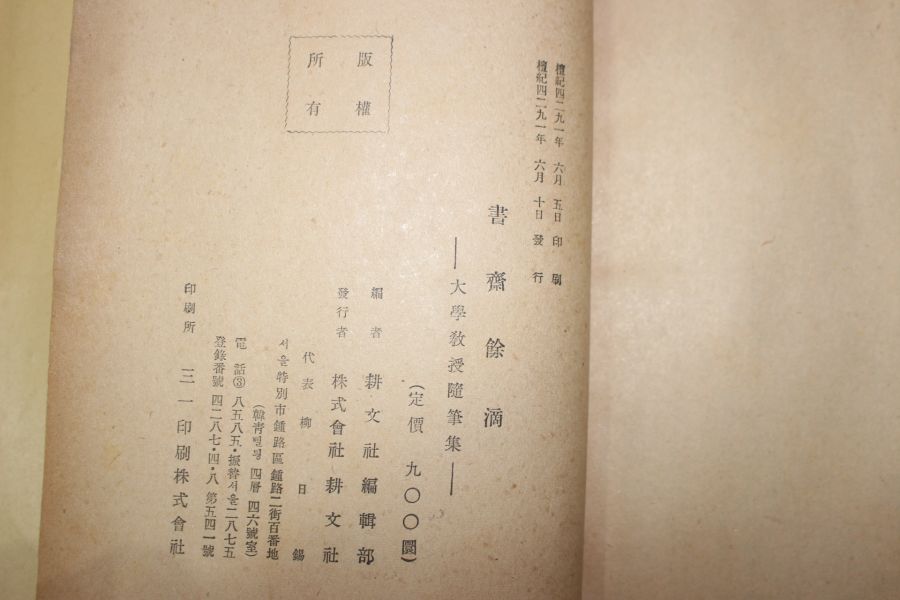 檀紀四二九一年 六月 五日 印刷
檀紀四二九一年 六月 十日 發行
書齋餘滴
―大學敎授隨筆集―
(定價 九〇〇圜)
編者 耕文社編輯部
發行者 株式會社 耕文社
代表 柳日錫
서울特別市鍾路區鍾路二街百番地
(韓靑빌딩 四層 四六號室)
電話③ 八五八五·振替서울二八七五
登錄番號 四二八七·四·八 第五四一號
印刷所 三一印刷株式會社
版權
所有